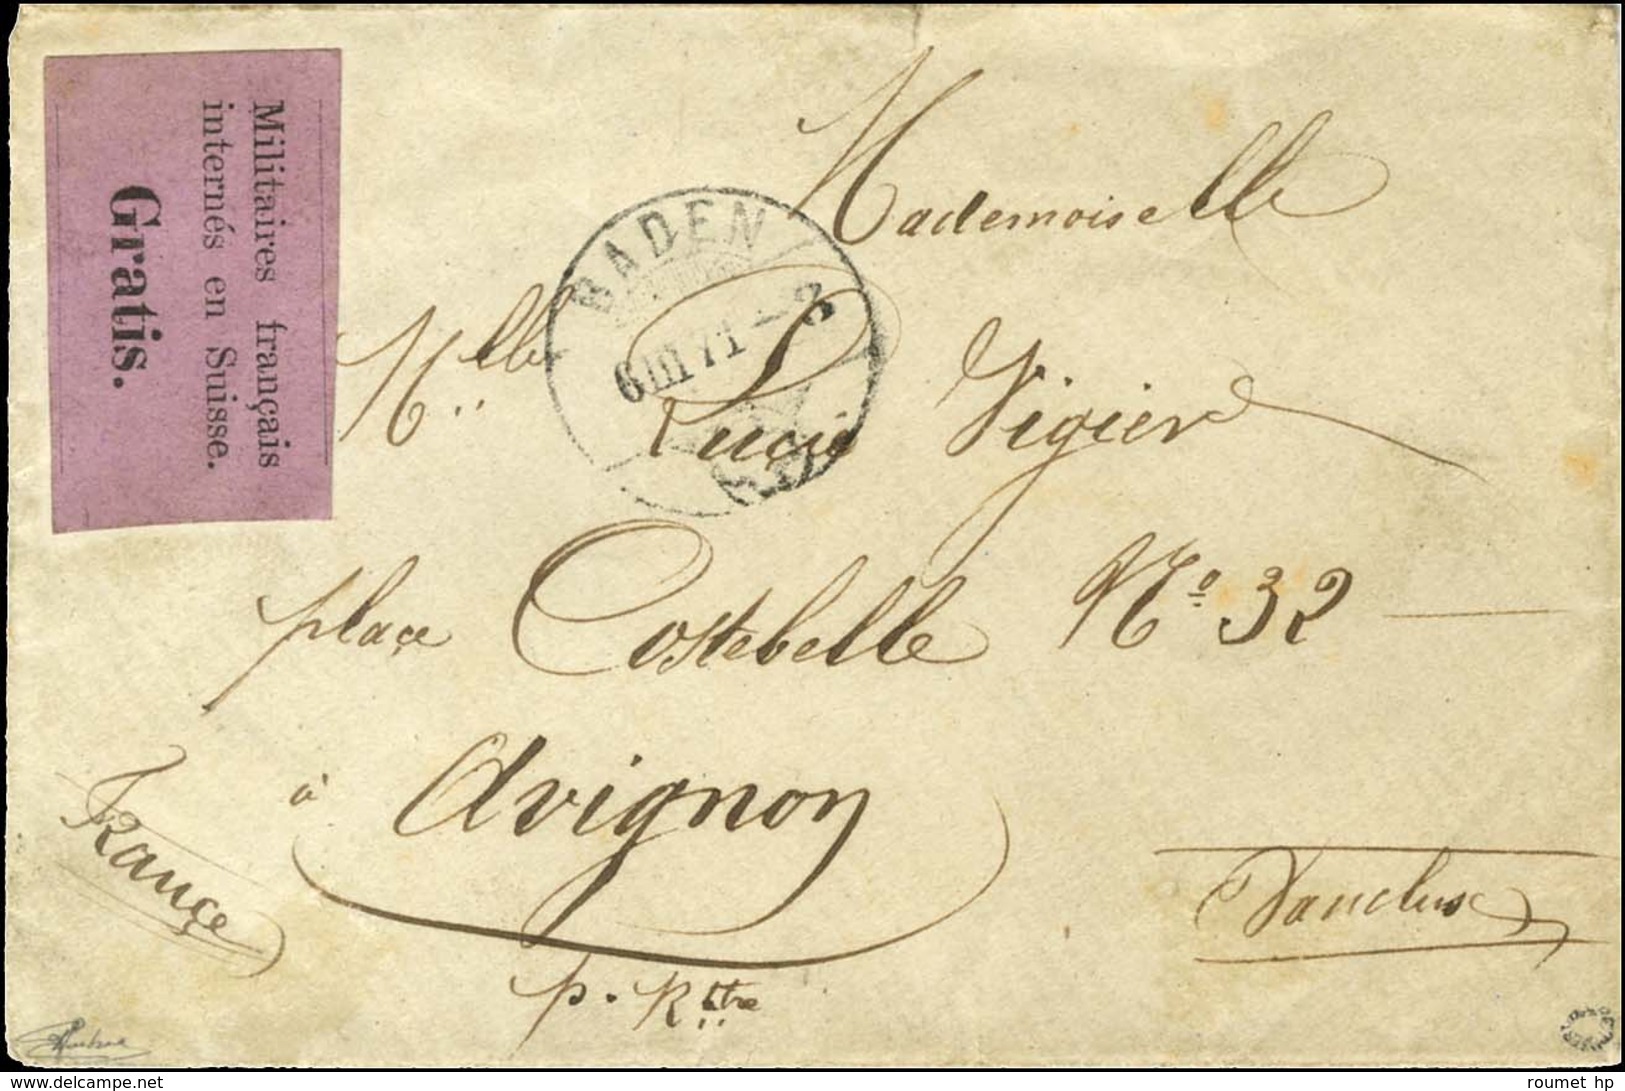 Militaires français
internés en Suisse.
Gratis.
BADEN
6 III 71 - 3
Mademoiselle
Mlle Lucie Vigier
place Costebelle No 32
à Avignon
Vaucluse
France
p. Rttre
roumet hp
www.delcampe.net